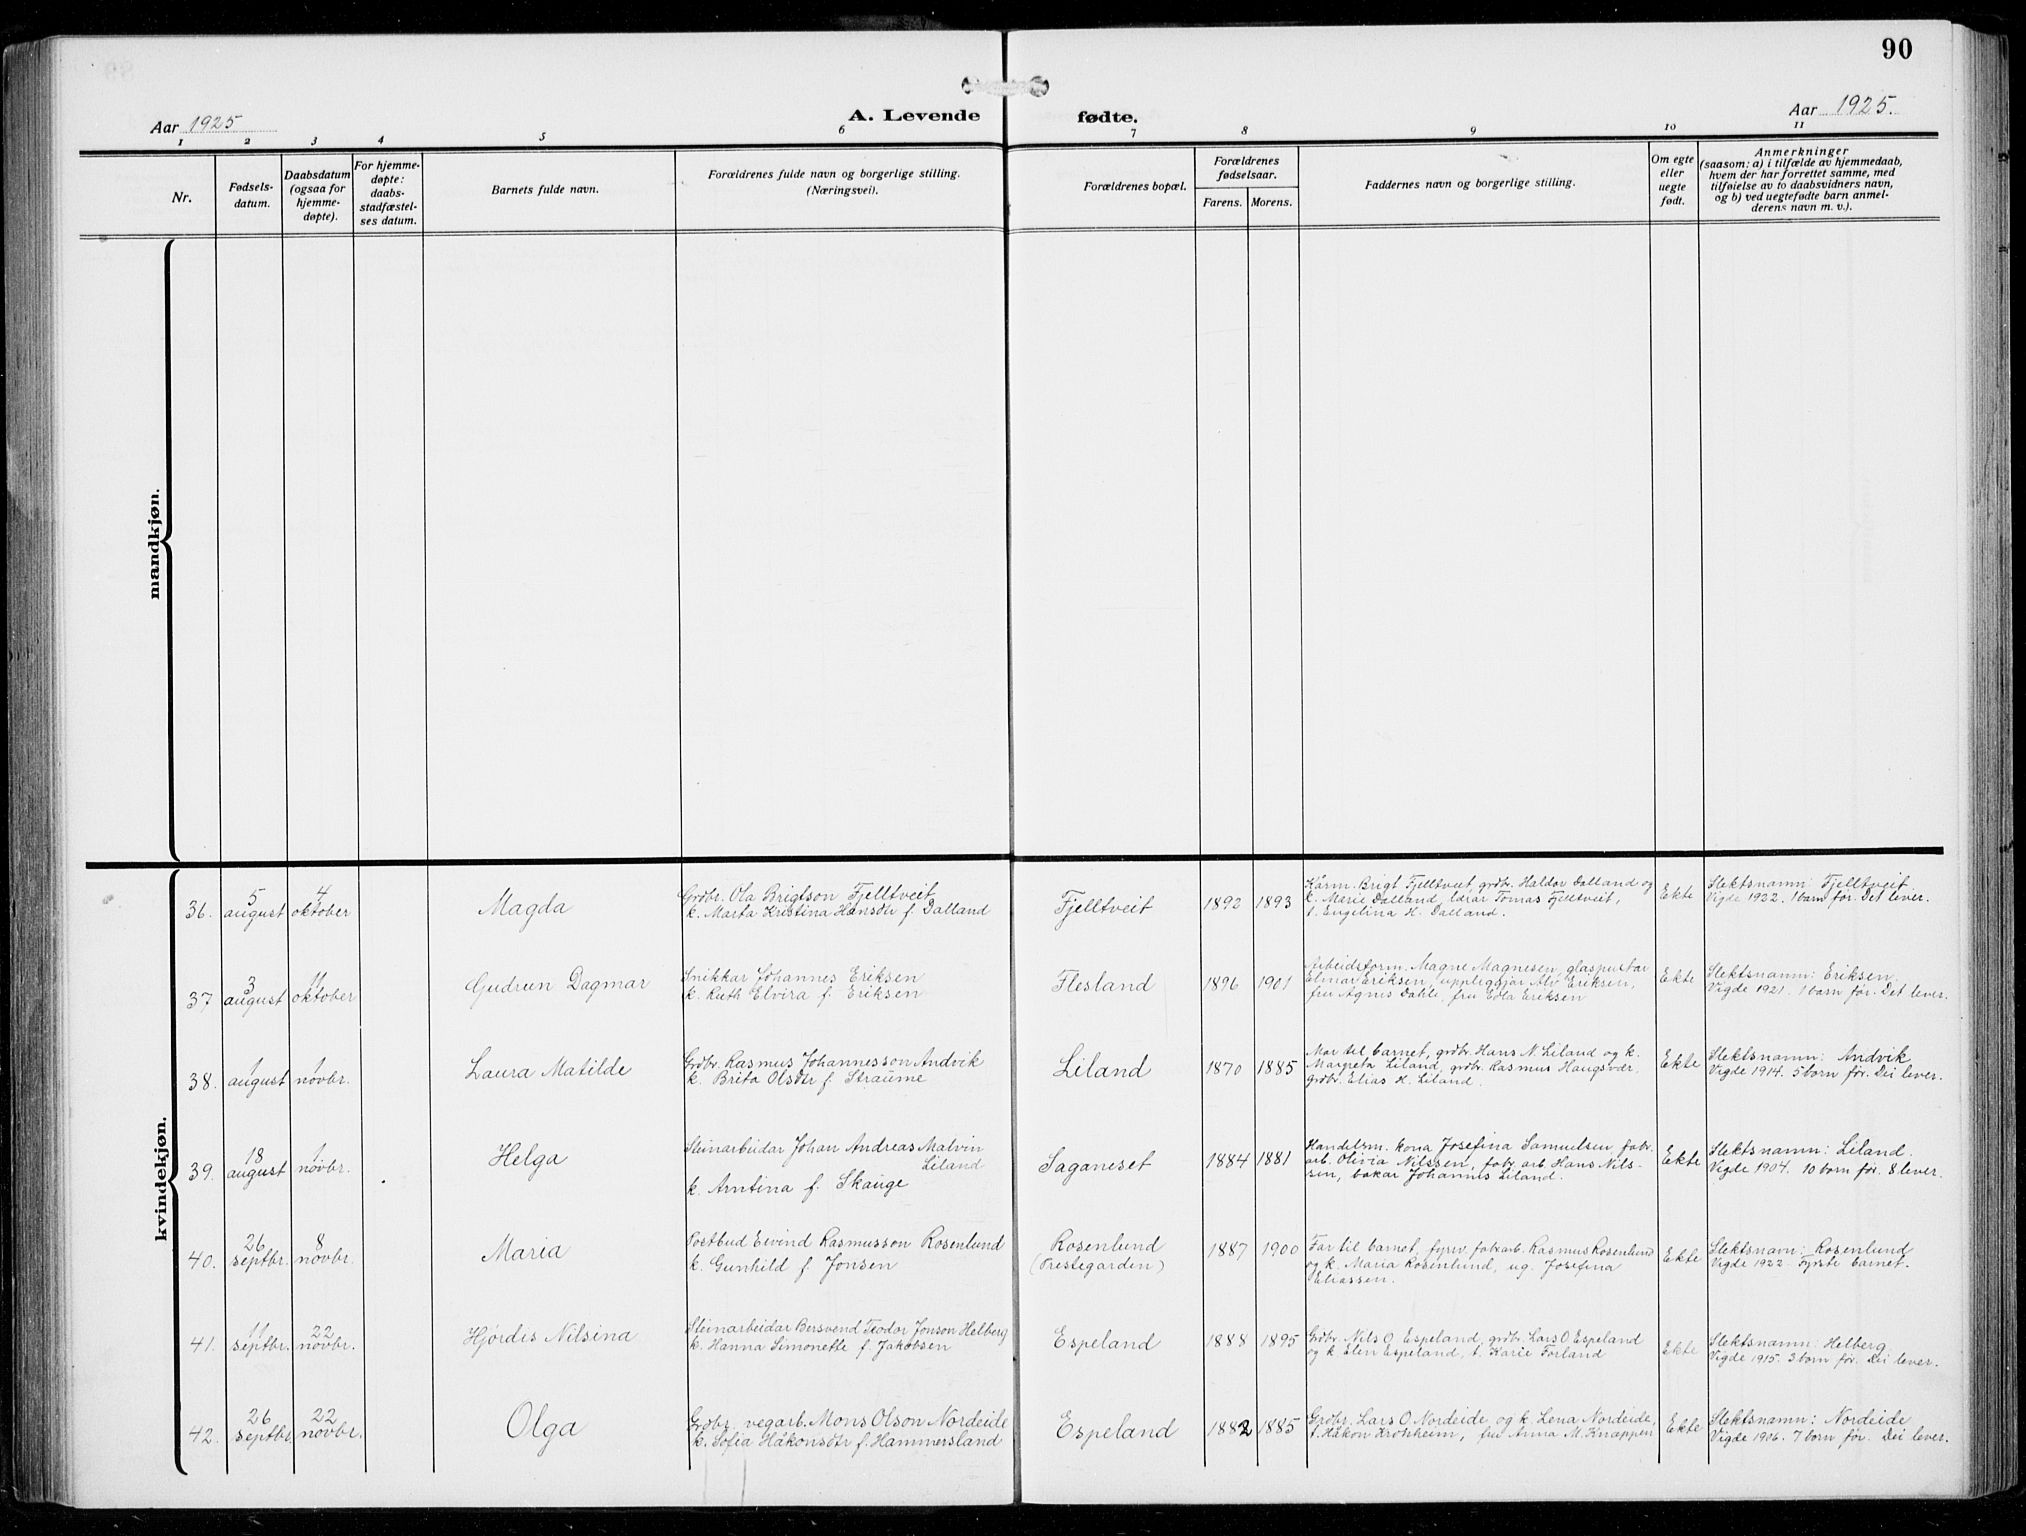 90
Aar 1925
A. Levende
fødte.
Aar 1925.
1 2 3 4 5 6 7 8 9 10 11
Nr.
Fødsels-
datum.
Daabsdatum
(ogsaa for
hjemme-
døpte).
For hjemme-
døpte:
daabs-
stadfæstel-
ses datum.
Barnets fulde navn.
Forældrenes fulde navn og borgerlige stilling.
(Næringsvei).
Forældrenes bopæl.
Forældrenes
fødselsaar.
Farens. Morens.
Faddernes navn og borgerlige stilling.
Om egte
eller
uegte
født.
Anmerkninger
(saasom: a) i tilfælde av hjemmedaab,
hvem der har forrettet samme, med
tilføielse av to daabsvidners navn,
og b) ved uegtefødte barn anmel-
derens navn m. v.).
mandkjøn.
kvindekjøn.
36.
5
august
4
oktober
Magda
Grdbr. Ola Brigtson Fjelltveit
k. Marta Kristina Hansdtr f. Dalland
Fjelltveit
1892 1893
Kårm. Brigt Fjelltveit, grdbr. Haldor Dalland og
k. Merie Dalland, lærar Tomas Fjelltveit,
t. Engelina H. Dalland.
Ekte
Slektsnamn: Fjelltveit.
Vigde 1922. 1 barn før. Det lever.
37
3
august
11
oktober
Gudrun Dagmar
Snikkar Johannes Eriksen
k. Ruth Elvira f. Eriksen
Flesland
1896 1901
Arbeidsform. Magne Magnesen, glaspustar
Einar Eriksen, uppleggjar Alv Eriksen,
fru Agnes Dahle, fru Edla Eriksen
Ekte
Slektsnamn: Eriksen.
Vigde 1921. 1 barn før. Det lever.
38.
1
august
1
novbr.
Laura Matilde
Grdbr. Rasmus Johannesson Andvik
k. Brita Olsdtr f. Straume
Liland
1870 1885
Mor til barnet, grdbr. Hans N. Liland og k.
Margreta Liland, grdbr. Rasmus Haugsvær,
grdbr. Elias H. Liland.
Ekte
Slektsnamn: Andvik
Vigde 1914. 5 born før. Dei lever.
39.
18
august
1
novbr.
Helga
Steinarbeidar Johan Andreas Malvin
Liland
k. Arntina f. Skauge
Saganeset
1884 1881
Handelsm. kona Josefina Samuelsen, fabr.
arb. Olivia Nilssen, fabr. arb. Hans Nils-
sen, bakar Johannes Liland.
Ekte
Slektsnamn: Liland.
Vigde 1904. 10 born før. 8 lever.
40.
26
septbr.
8
novbr.
Maria
Postbud Eivind Rasmusson Rosenlund
k. Gunhild f. Jonsen
Rosenlund
(Prestegarden)
1887 1900
Far til barnet, fyrv. fabr.arb. Rasmus Rosenlund
og k. Maria Rosenlund, ug. Josefina
Eliassen.
Ekte
Slektsnavn: Rosenlund
Vigde 1922. Fyrste barnet.
41.
11
septbr.
22
novbr.
Hjørdis Nilsina
Steinarbeidar Bersvend Teodor Jonson Helberg
k. Hanna Simonette f. Jakobsen
Espeland
1888 1895
Grdbr. Nils O. Espeland, grdbr. Lars O. Espeland
og k. Elen Espeland, t. Karie Forland
Ekte
Slektsnamn: Helberg
Vigde 1915. 3 born før. Dei lever.
42.
26
septbr.
22
novbr.
Olga
Grdbr. vegarb. Mons Olson Nordeide
k. Sofia Håkonsdtr f. Hammersland
Espeland
1882 1885
Grdbr. Lars O. Nordeide, og k. Lena Nordeide,
t. Håkon Krohheim, fru Anna M. Knappen
Ekte
Slektsnamn: Nordeide
Vigde 1906. 7 born før. Dei lever.